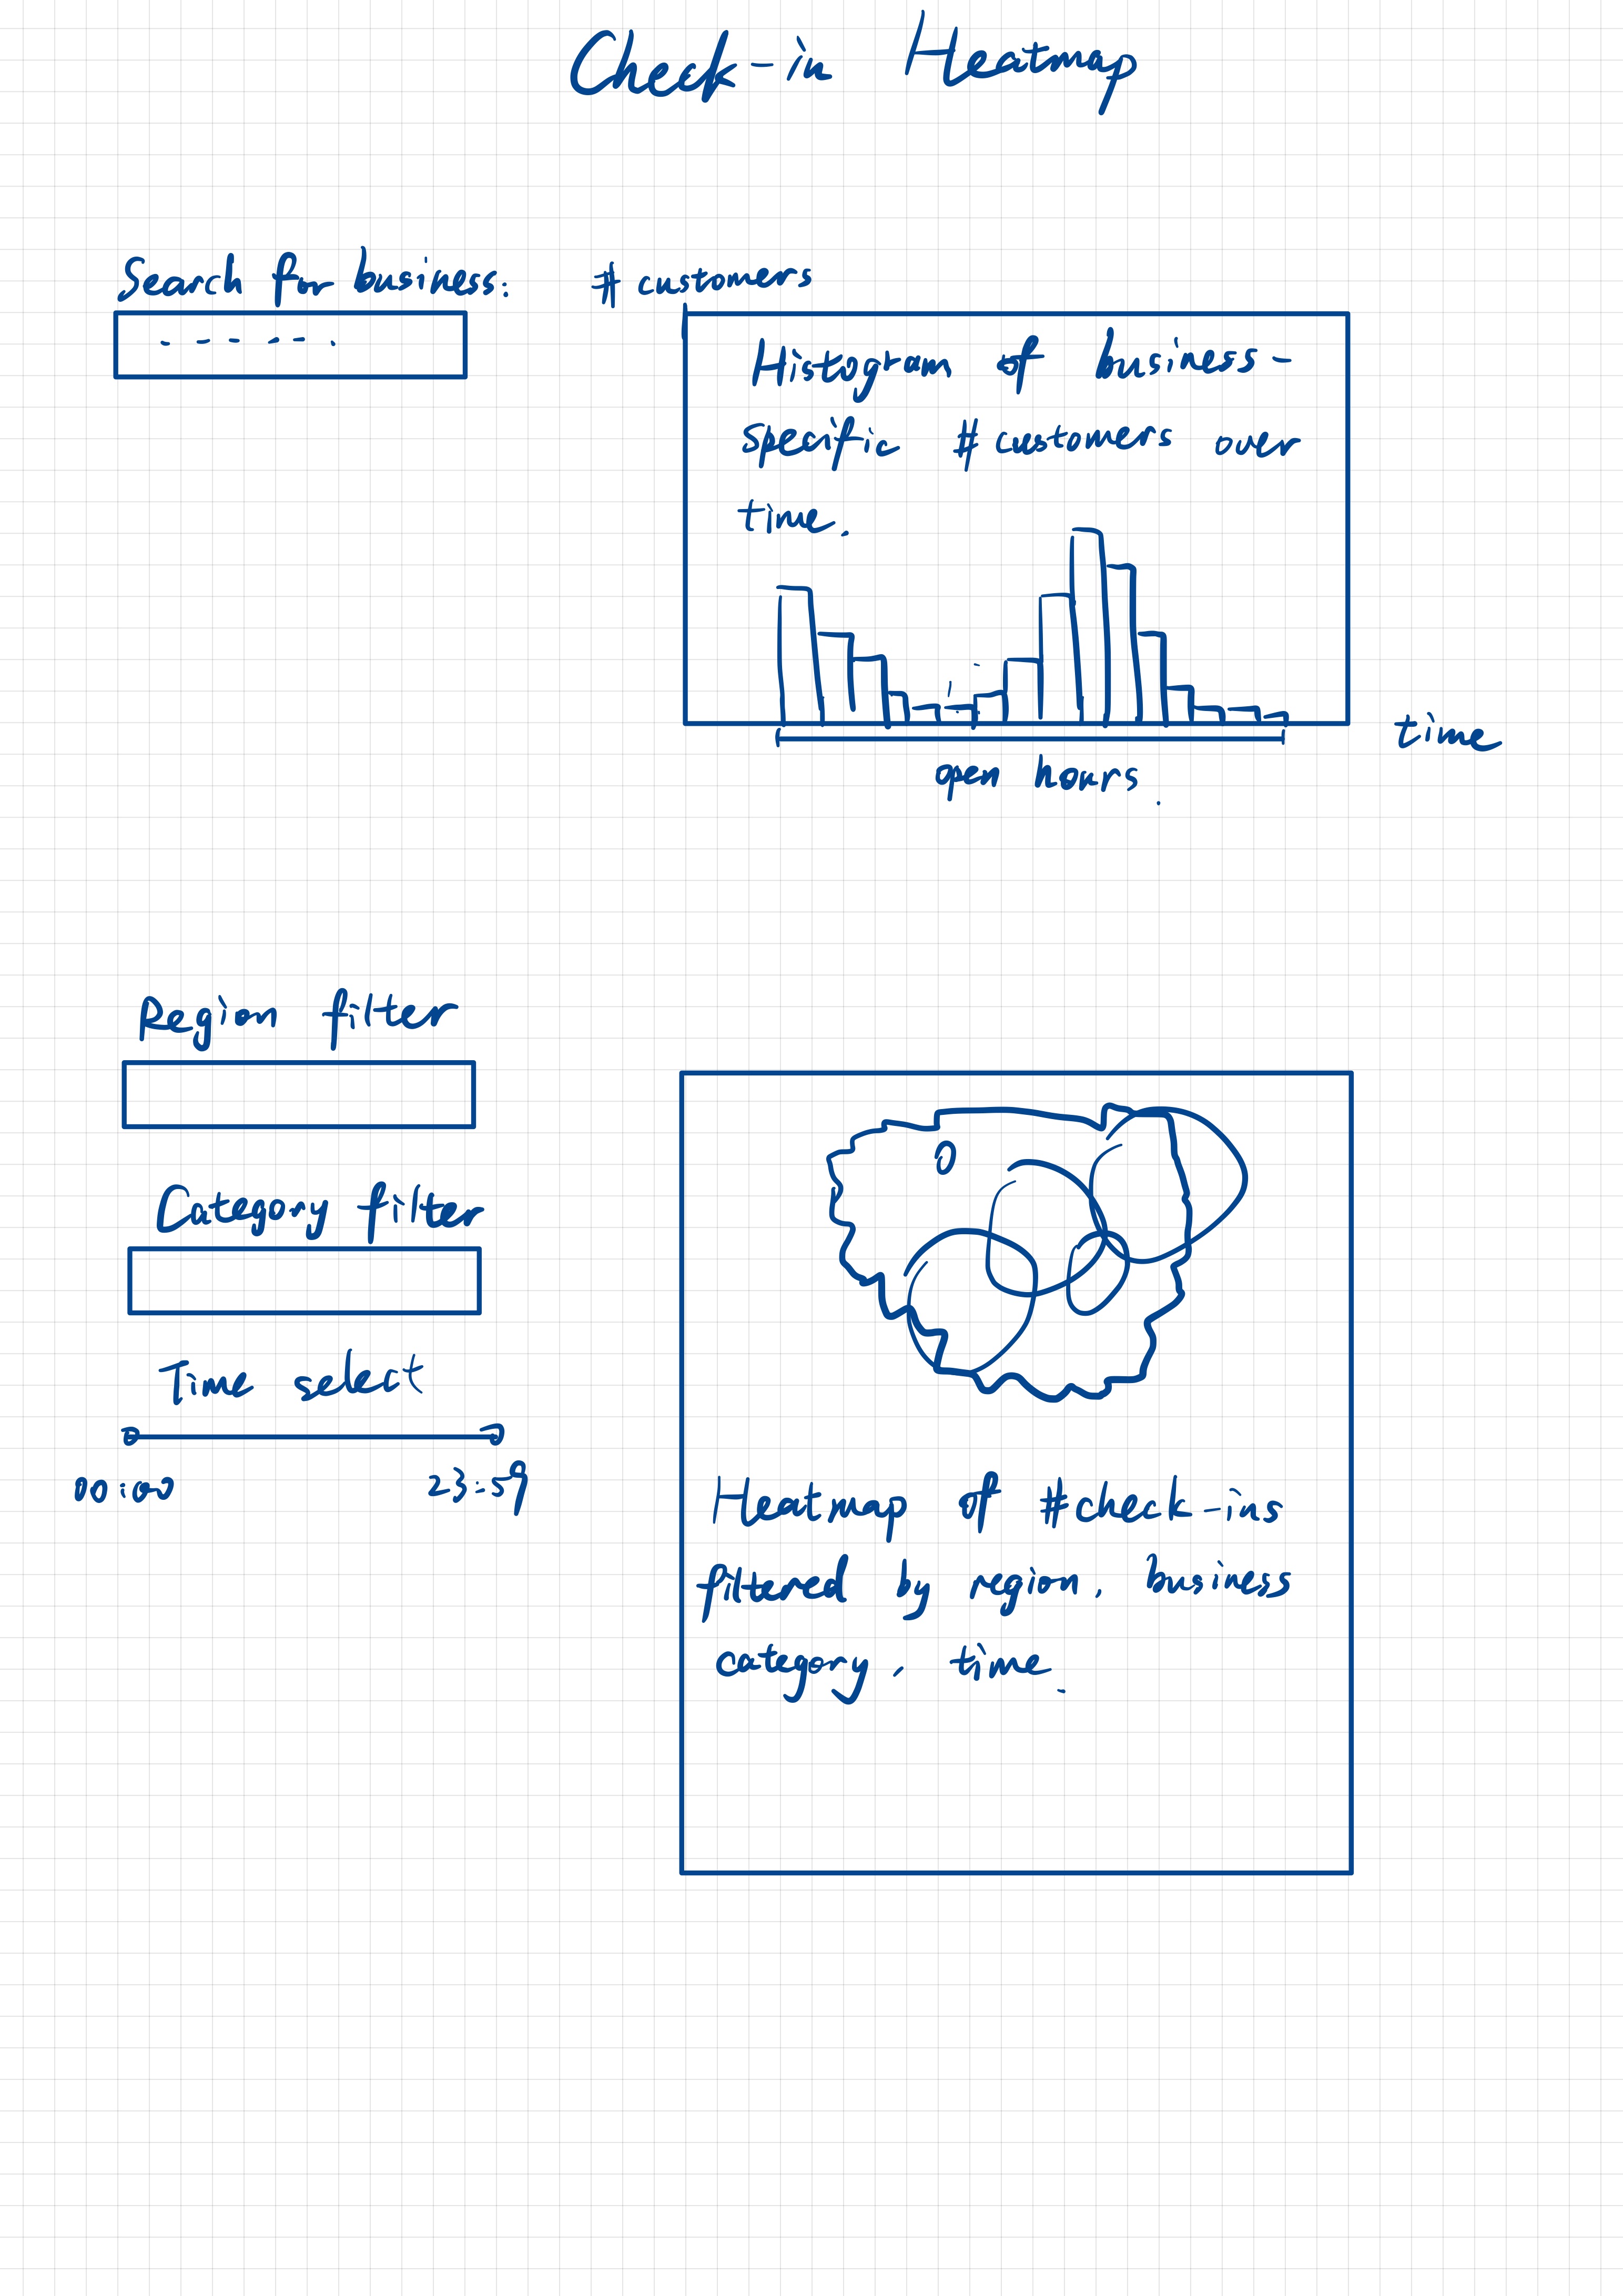 Check-in Heatmap
Search for business:
# customers
Histogram of business-
specific # customers over
time.
time
open hours.
Region filter
Category filter
Time select
00:00
23:59
Heatmap of #check-ins
filtered by region, business
category, time.